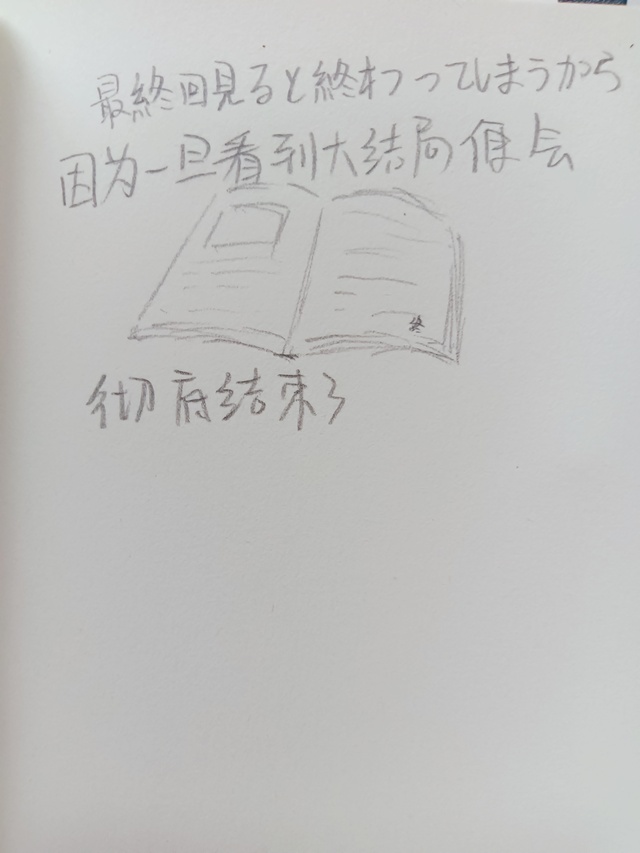 最終回見ると終わってしまうから
因为一旦看到大结局便会
終
彻底结束了